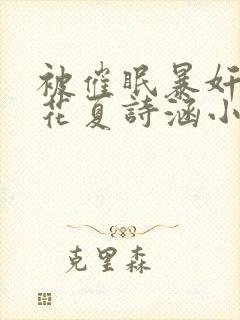 被催眠暴奸
花夏詩涵小
克里森